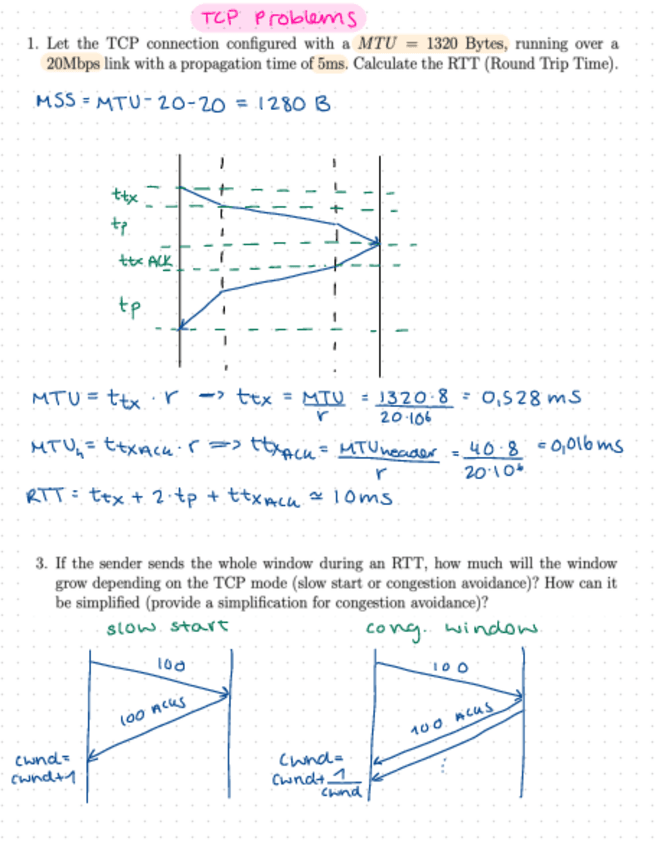 TCP Problems
1. Let the TCP connection configured with a MTU = 1320 Bytes, running over a
20Mbps link with a propagation time of 5ms. Calculate the RTT (Round Trip Time).
MSS = MTU - 20 - 20 = 1280 B
ttx
tp
ttx ACK
tp
MTU = ttx · r -> ttx = MTU / r = 1320·8 / 20·10⁶ = 0,528 ms
MTUh = ttxACK · r => ttxACK = MTUheader / r = 40·8 / 20·10⁶ = 0,016 ms
RTT = ttx + 2·tp + ttxACK ≃ 10ms
3. If the sender sends the whole window during an RTT, how much will the window
grow depending on the TCP mode (slow start or congestion avoidance)? How can it
be simplified (provide a simplification for congestion avoidance)?
slow start cong. window
100 100
100 ACKS 100 ACKS
cwnd= cwnd=
cwnd+1 cwnd+ 1 / cwnd
⋮